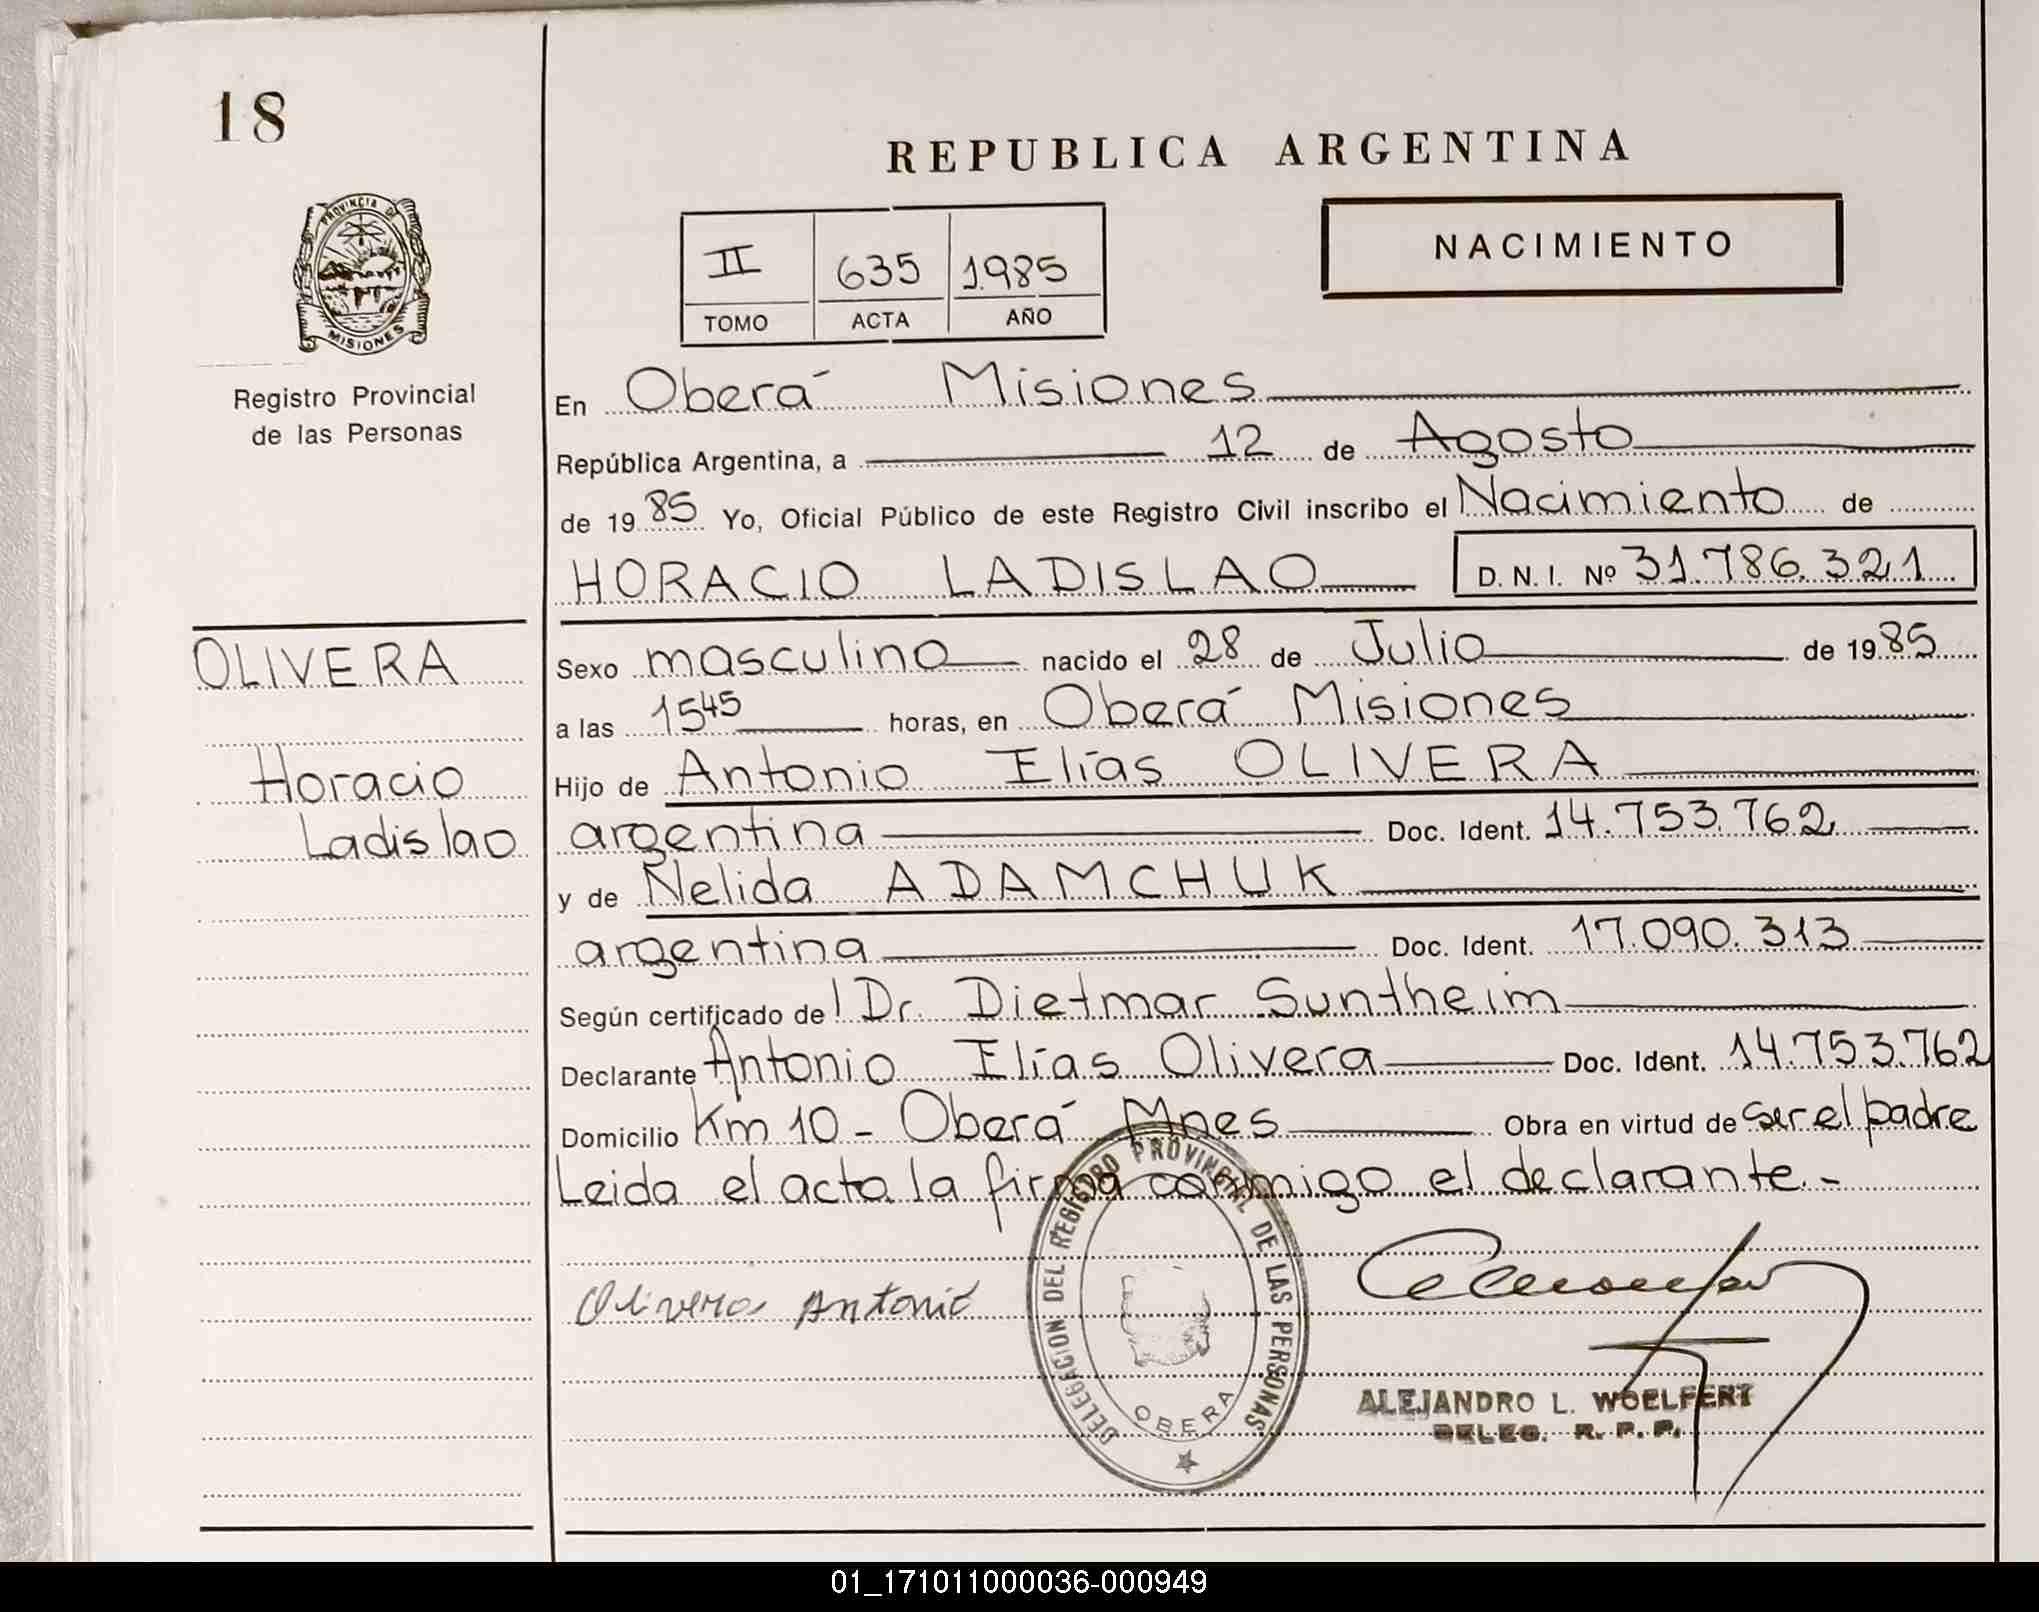 18
REPUBLICA ARGENTINA
PROVINCIA DE
MISIONES
Registro Provincial
de las Personas
II 635 1985
TOMO ACTA AÑO
NACIMIENTO
En Oberá Misiones
República Argentina, a 12 de Agosto
de 1985 Yo, Oficial Público de este Registro Civil inscribo el Nacimiento de
HORACIO LADISLAO D. N. I. Nº 31.786.321
OLIVERA
Horacio
Ladislao
Sexo masculino nacido el 28 de Julio de 1985
a las 1545 horas, en Oberá Misiones
Hijo de Antonio Elías OLIVERA
argentina Doc. Ident. 14.753.762
y de Nelida ADAMCHUK
argentina Doc. Ident. 17.090.313
Según certificado de l Dr. Dietmar Suntheim
Declarante Antonio Elías Olivera Doc. Ident. 14.753.762
Domicilio Km 10 - Oberá Mnes Obra en virtud de ser el padre
Leida el acta la firma conmigo el declarante.-
Olivera Antonio
DELEGACION DEL REGISTRO PROVINCIAL DE LAS PERSONAS
OBERA
ALEJANDRO L. WOELFERT
DELEG. R. P. P.
01_171011000036-000949